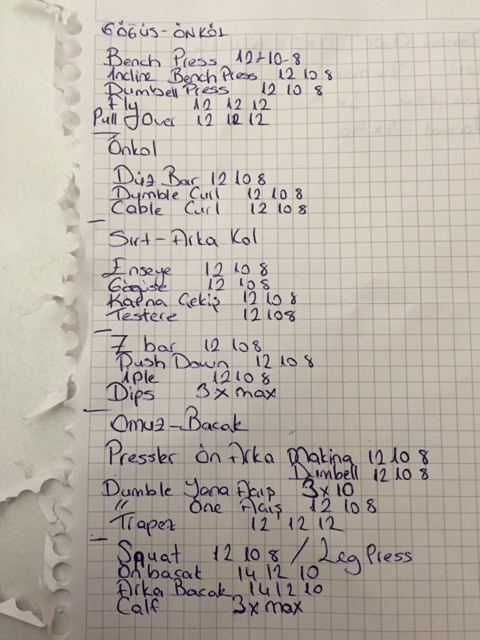 GÖĞÜS-ÖNKOL
Bench Press 12-10-8
Incline Bench Press 12 10 8
Dumbell Press 12 10 8
Fly 12 12 12
Pull Over 12 12 12
Önkol
Düz Bar 12 10 8
Dumble Curl 12 10 8
Cable Curl 12 10 8
Sırt-Arka Kol
Enseye 12 10 8
Göğüse 12 10 8
Karına Çekiş 12 10 8
Testere 12 10 8
Z bar 12 10 8
Push Down 12 10 8
İple 12 10 8
Dips 3 x max
Omuz-Bacak
Pressler Ön Arka Making 12 10 8
Dumbell 12 10 8
Dumble Yana Açış 3x10
" Öne Açış 12 10 8
Trapez 12 12 12
Squat 12 10 8 / Leg Press
Ön bacak 14 12 10
Arka Bacak 14 12 10
Calf 3x max